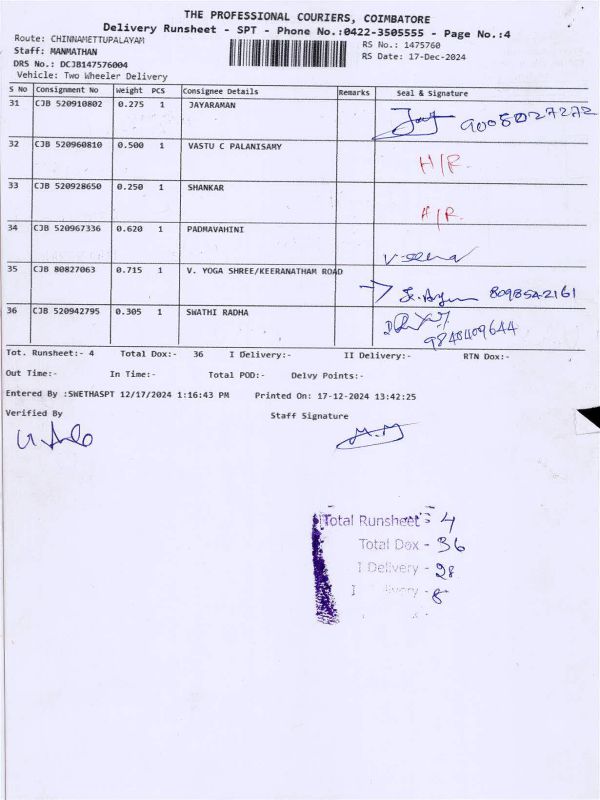 THE PROFESSIONAL COURIERS, COIMBATORE
Delivery Runsheet - SPT - Phone No.:0422-3505555 - Page No.:4
Route: CHINNAMETTUPALAYAM
RS No.: 1475760
Staff: MANMATHAN
RS Date: 17-Dec-2024
DRS No.: DCJB147576004
Vehicle: Two Wheeler Delivery
S No Consignment No Weight PCS Consignee Details Remarks Seal & Signature
31 CJB 520910802 0.275 1 JAYARAMAN
9005027272
32 CJB 520960810 0.500 1 VASTU C PALANISAMY
H/R
33 CJB 520928650 0.250 1 SHANKAR
H/R
34 CJB 520967336 0.620 1 PADMAVAHINI
35 CJB 80827063 0.715 1 V. YOGA SHREE/KEERANATHAM ROAD
8098542161
36 CJB 520942795 0.305 1 SWATHI RADHA
9848409644
Tot. Runsheet:- 4 Total Dox:- 36 I Delivery:- II Delivery:- RTN Dox:-
Out Time:- In Time:- Total POD:- Delvy Points:-
Entered By :SWETHASPT 12/17/2024 1:16:43 PM Printed On: 17-12-2024 13:42:25
Verified By Staff Signature
Total Runsheet : 4
Total Dox - 36
I Delivery - 28